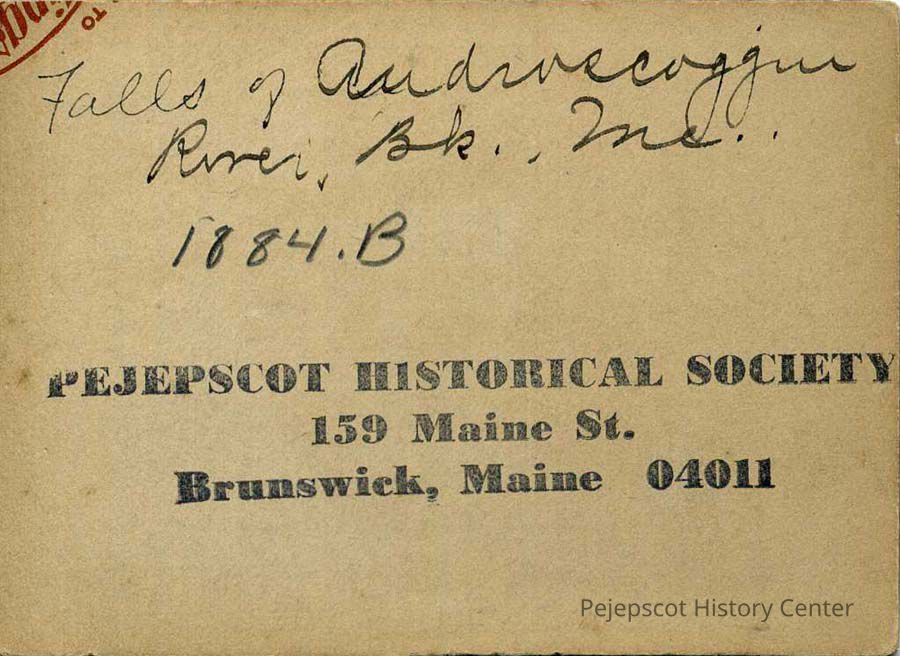 TO
Falls of Androscoggin
River, Bk., Me..
1884.B
PEJEPSCOT HISTORICAL SOCIETY
159 Maine St.
Brunswick, Maine 04011
Pejepscot History Center